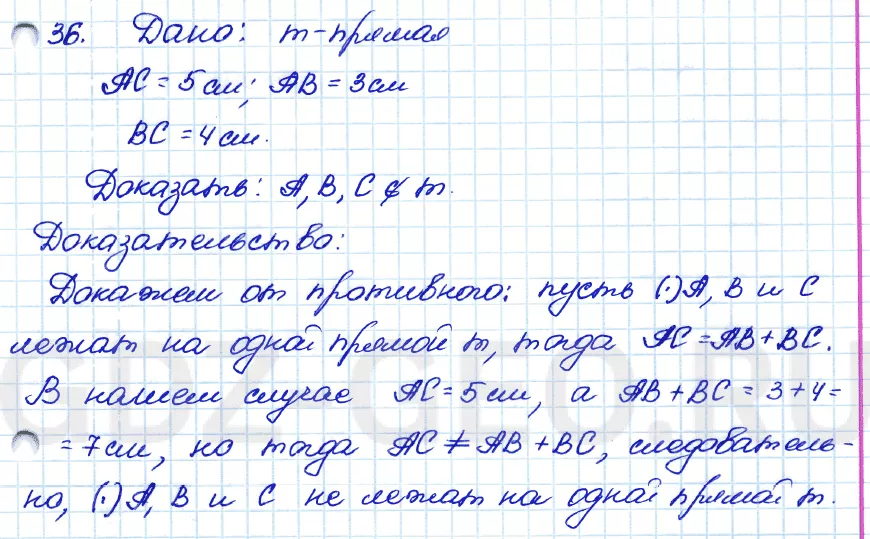 36. Дано: m-прямая
AC = 5 см; AB = 3 см
BC = 4 см.
Доказать: A, B, C ∉ m.
Доказательство:
Докажем от противного: пусть (·) A, B и C
лежат на одной прямой m, тогда AC = AB + BC.
В нашем случае AC = 5 см, а AB + BC = 3 + 4 =
= 7 см, но тогда AC ≠ AB + BC, следователь-
но, (·) A, B и C не лежат на одной прямой m.